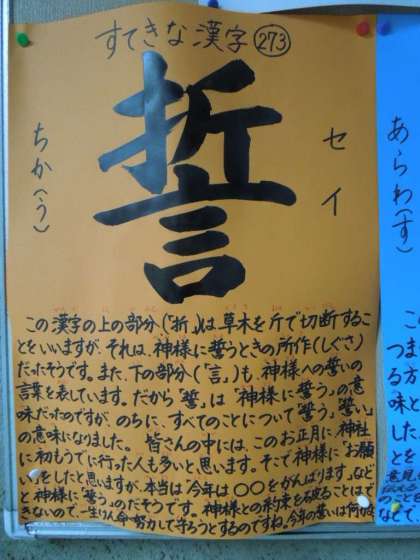 すてきな漢字 273
誓
セイ
ちか(う)
この漢字の上の部分(「折」)は草木を斤で切断するこ
とをいいますが、それは、神様に誓うときの所作(しぐさ)
だったそうです。また、下の部分(「言」)も、神様への誓いの
言葉を表しています。だから「誓」は“神様に誓う”の意
味だったのですが、のちに、すべてのことについて“誓う”“誓い”
の意味になりました。 皆さんの中には、このお正月に、神社
に初もうでに行った人も多いと思います。そこで神様に「お願
い」をしたと思いますが、本当は“今年は〇〇をがんばります”など
と神様に“誓う”のだそうです。神様との約束を破ることはで
きないので、一生けん命努力して守ろうとするのですね。今年の誓いは何かな
あらわ(す)
こ
つま
る方
味と
した
とを
意見
のこと
などで、